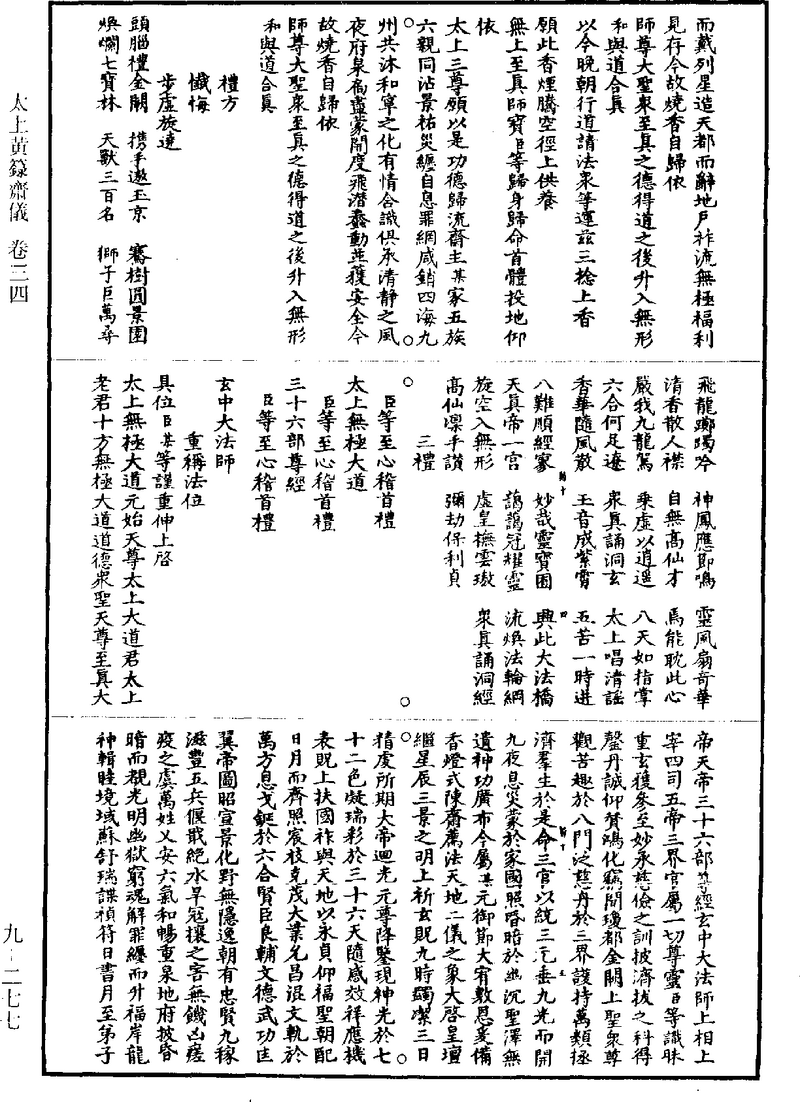 太上黄籙齋儀　卷三四
九－二七七
而戴列星造天都而辭地戶祚流無極福利
見存今故燒香自歸依
師尊大聖衆至真之德得道之後升入無形
和與道合真
以今晚朝行道請法衆等運茲三捻上香
願此香煙騰空徑上供養
無上至真師寶臣等歸身歸命首體投地仰
依
太上三尊願以是功德歸流齋主某家五族
六親同沾景祐災纏自息罪網咸銷四海九
州共沐和寧之化有情含識俱承清靜之風
夜府泉扃盡蒙開度飛潛蠢動並獲安全今
故燒香自歸依
師尊大聖衆至真之德得道之後升入無形
和與道合真
禮方
懺悔
步虛旋遶
頭腦禮金闕　携手遨玉京　騫樹圓景園
煥爛七寶林　天獸三百名　獅子巨萬尋
飛龍躑躅吟　神鳳應節鳴　靈風扇奇華
清香散人襟　自無高仙才　焉能耽此心
嚴我九龍駕　乘虛以逍遥　八天如指掌
六合何足遼　衆真誦洞玄　太上唱清謡
香華隨風散　玉音成紫霄　五苦一時迸
八難順經寥　妙哉靈寶囿　興此大法橋
天真帝一宫　藹藹冠耀靈　流煥法輪綱
旋空入無形　虛皇撫雲璈　衆真誦洞經
高仙凛手讚　彌劫保利貞
三禮
臣等至心稽首禮
太上無極大道
臣等至心稽首禮
三十六部尊經
臣等至心稽首禮
玄中大法師
重稱法位
具位臣某等謹重伸上啓
太上無極大道元始天尊太上大道君太上
老君十方無極大道道德衆聖天尊至真大
帝天帝三十六部尊經玄中大法師上相上
宰四司五帝三界官屬一切尊靈臣等識昧
重玄獲參至妙承慈儉之訓披濟拔之科得
罄丹誠仰贊鴻化竊聞瓊都金闕上聖衆尊
觀苦趣於八門泛慈舟於三界護持萬類拯
濟羣生於是命三官以統三炁垂九光而開
九夜息災衰於家國照昏暗於幽沉聖澤無
遺神功廣布今屬某元御節大宥敷恩爰備
香燈式陳齋薦法天地二儀之象大啓皇壇
繼星辰三景之明上祈玄貺九時蠲潔三日
精虔所期大帝迴光元尊降鑒現神光於七
十二色凝瑞彩於三十六天隨感效祥應機
表貺上扶國祚與天地以永貞仰福聖朝配
日月而齊照宸枝克茂大業允昌混文軌於
萬方息戈鋋於六合賢臣良輔文德武功匡
翼帝圖昭宣景化野無隱逸朝有忠賢九稼
滋豐五兵偃戢絶水旱寇攘之害無饑凶瘥
疫之虞萬姓乂安六氣和暢重泉地府披昏
暗而覩光明幽獄窮魂解罪纏而升福岸龍
神輯睦境域蘇舒瑞諜禎符日書月至弟子